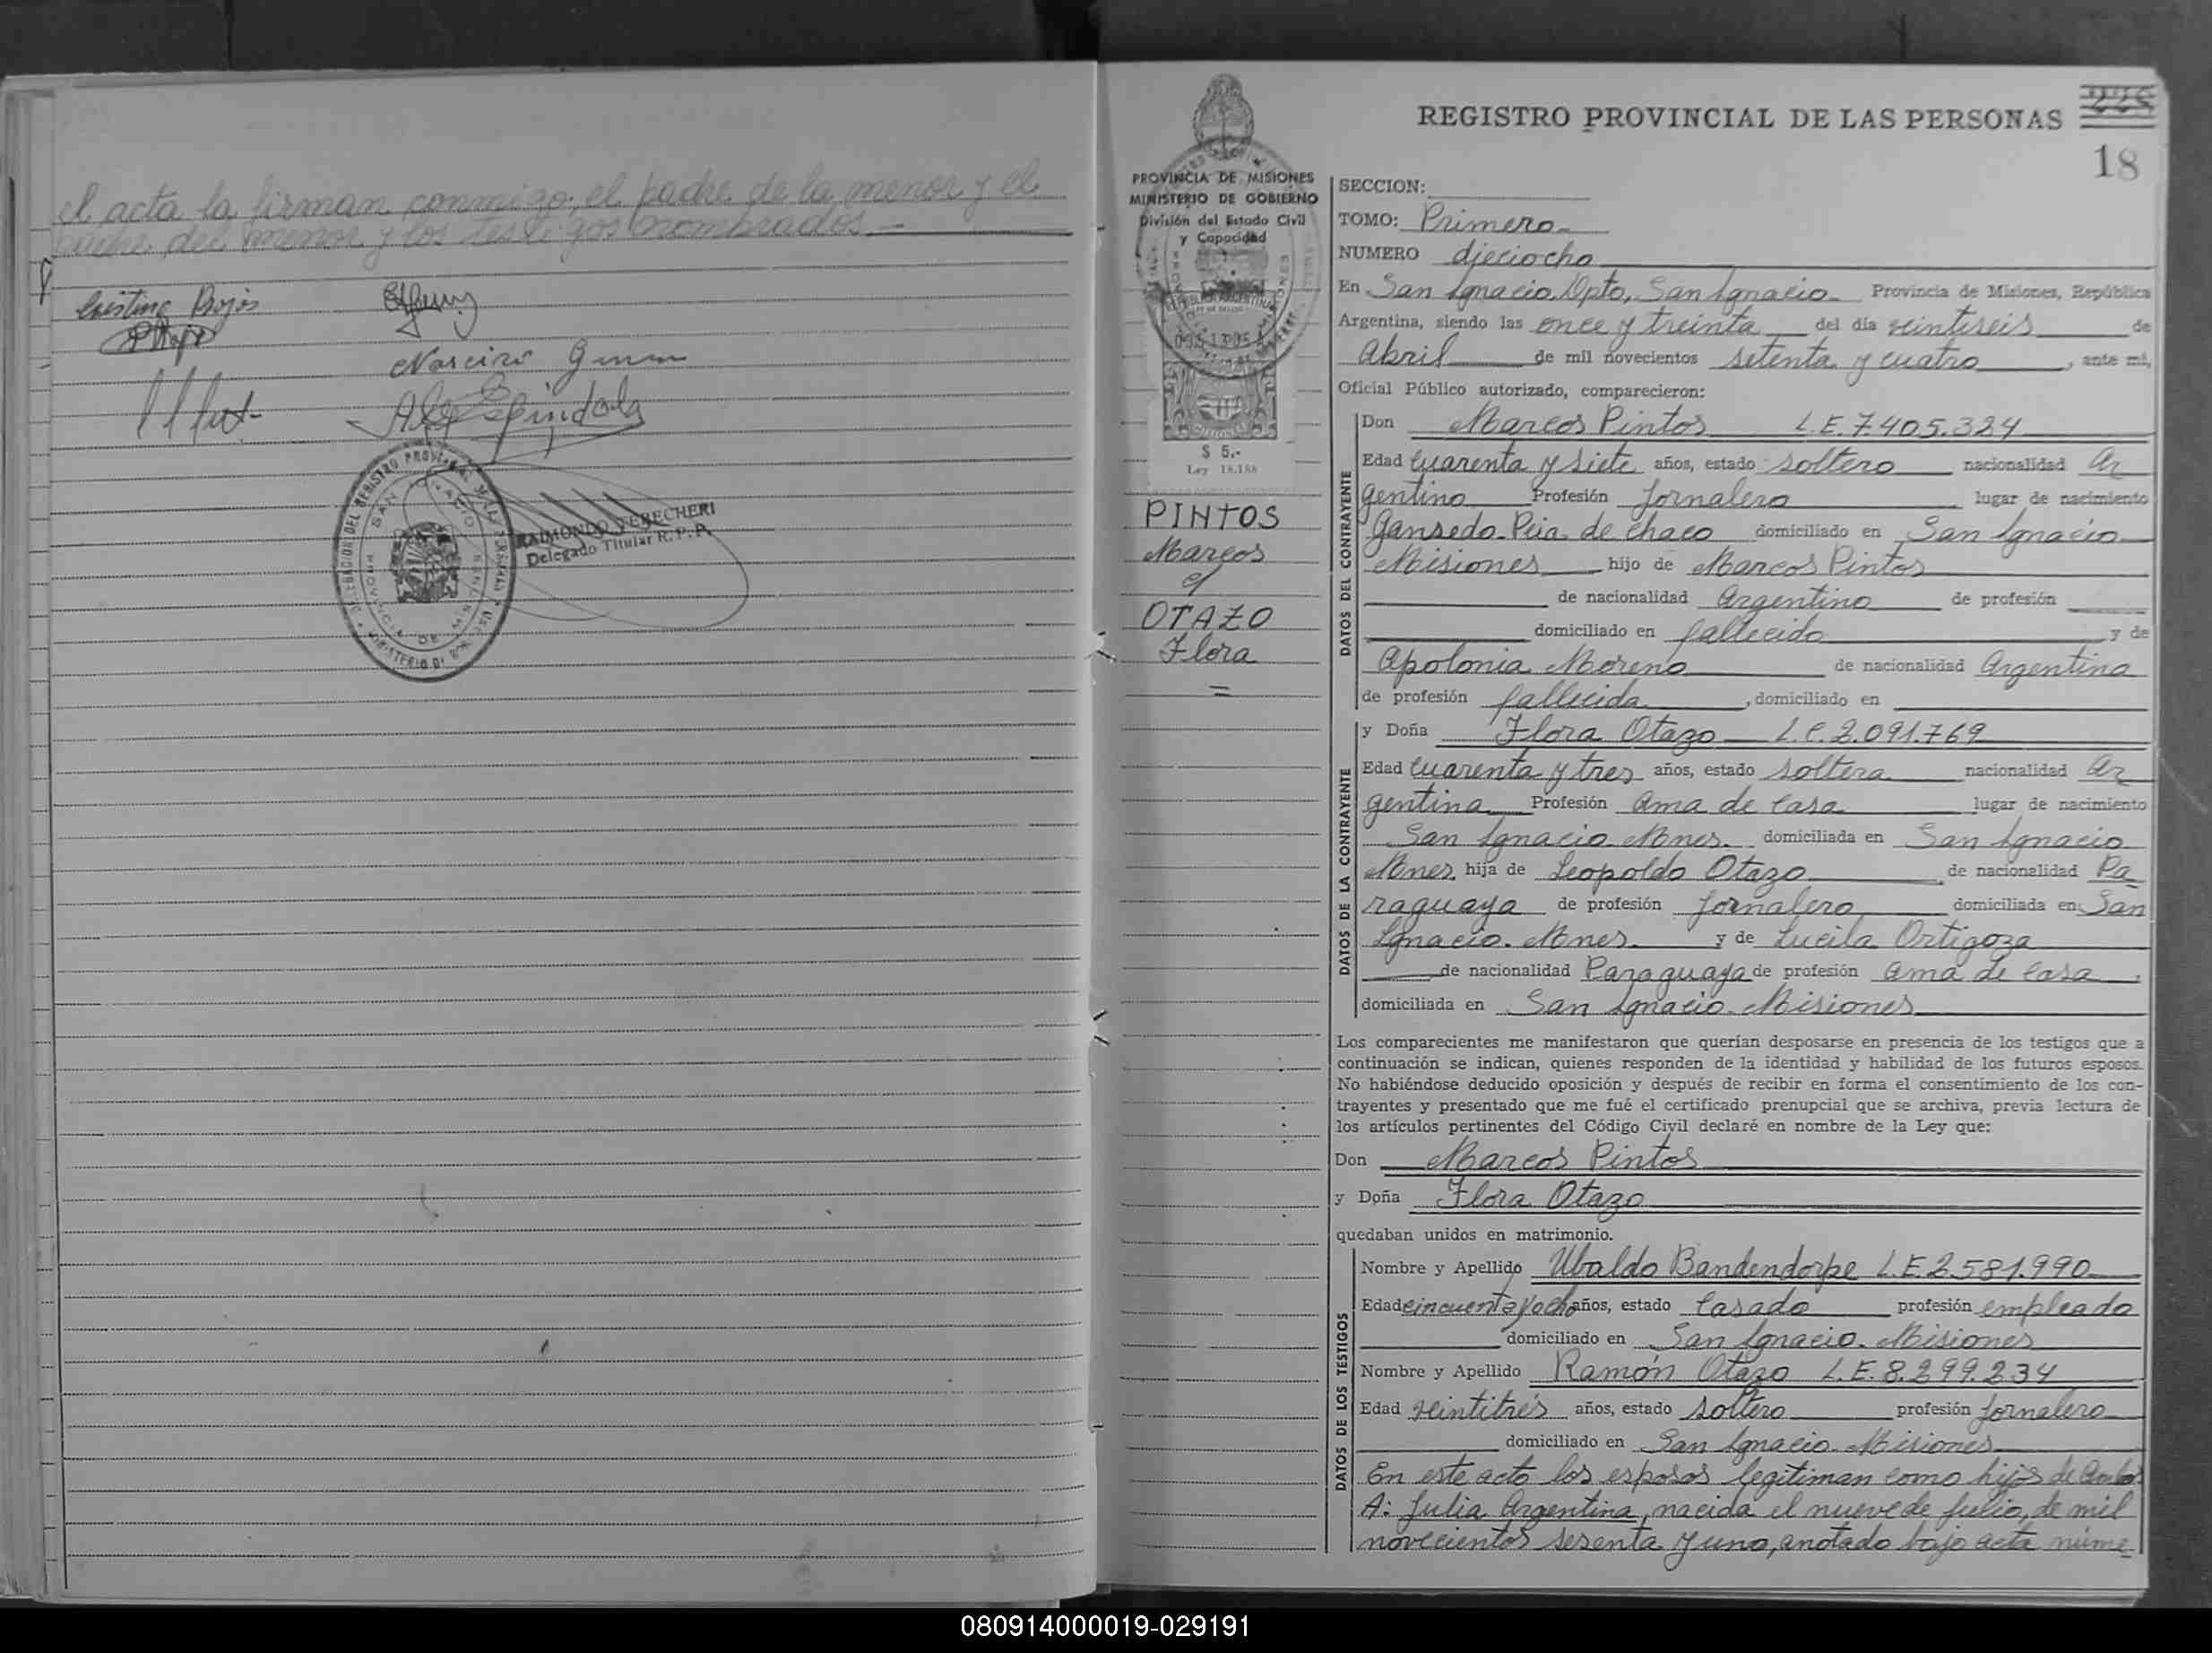 el acta la firman conmigo, el padre de la menor y el
padre del menor y los testigos nombrados.
Cristina Rojas
Narciso
Espindola
RAIMONDO
Delegado Titular R. P. P.
PROVINCIA DE MISIONES
MINISTERIO DE GOBIERNO
División del Estado Civil
y Capacidad
$ 5.-
Ley 18.188
PINTOS
Marcos
c/
OTAZO
Flora
=
REGISTRO PROVINCIAL DE LAS PERSONAS
18
SECCION:
TOMO: Primero-
NUMERO dieciocho
En San Ignacio, Dpto, San Ignacio- Provincia de Misiones, República
Argentina, siendo las once y treinta del día veintiseis de
Abril de mil novecientos setenta y cuatro, ante mí,
Oficial Público autorizado, comparecieron:
DATOS DEL CONTRAYENTE
Don Marcos Pintos L.E. 7.405.324
Edad cuarenta y siete años, estado soltero nacionalidad Ar
gentino Profesión Jornalero lugar de nacimiento
Gansedo-Pcia. de Chaco domiciliado en San Ignacio
Misiones hijo de Marcos Pintos
de nacionalidad Argentino de profesión
domiciliado en fallecido y de
Apolonia Moreno de nacionalidad Argentina
de profesión fallecida, domiciliado en
DATOS DE LA CONTRAYENTE
y Doña Flora Otazo L.C. 2.091.769
Edad cuarenta y tres años, estado soltera nacionalidad Ar
gentina Profesión Ama de Casa lugar de nacimiento
San Ignacio Mnes. domiciliada en San Ignacio
Mnes. hija de Leopoldo Otazo de nacionalidad Pa
raguaya de profesión Jornalero domiciliada en San
Ignacio. Mnes. y de Lucila Ortigoza
de nacionalidad Paraguaya de profesión Ama de Casa,
domiciliada en San Ignacio-Misiones
Los comparecientes me manifestaron que querían desposarse en presencia de los testigos que a
continuación se indican, quienes responden de la identidad y habilidad de los futuros esposos.
No habiéndose deducido oposición y después de recibir en forma el consentimiento de los con-
trayentes y presentado que me fué el certificado prenupcial que se archiva, previa lectura de
los artículos pertinentes del Código Civil declaré en nombre de la Ley que:
Don Marcos Pintos
y Doña Flora Otazo
quedaban unidos en matrimonio.
DATOS DE LOS TESTIGOS
Nombre y Apellido Ubaldo Bandendorpe L.E. 2.581.990
Edad cincuenta y ocho años, estado Casado profesión empleado
domiciliado en San Ignacio. Misiones
Nombre y Apellido Ramón Otazo L.E. 8.299.234
Edad veintitrés años, estado soltero profesión Jornalero
domiciliado en San Ignacio-Misiones
En este acto los esposos legitiman como hijos de Ambos
A: Julia Argentina, nacida el nueve de Julio, de mil
novecientos sesenta y uno, anotado bajo acta núme
080914000019-029191